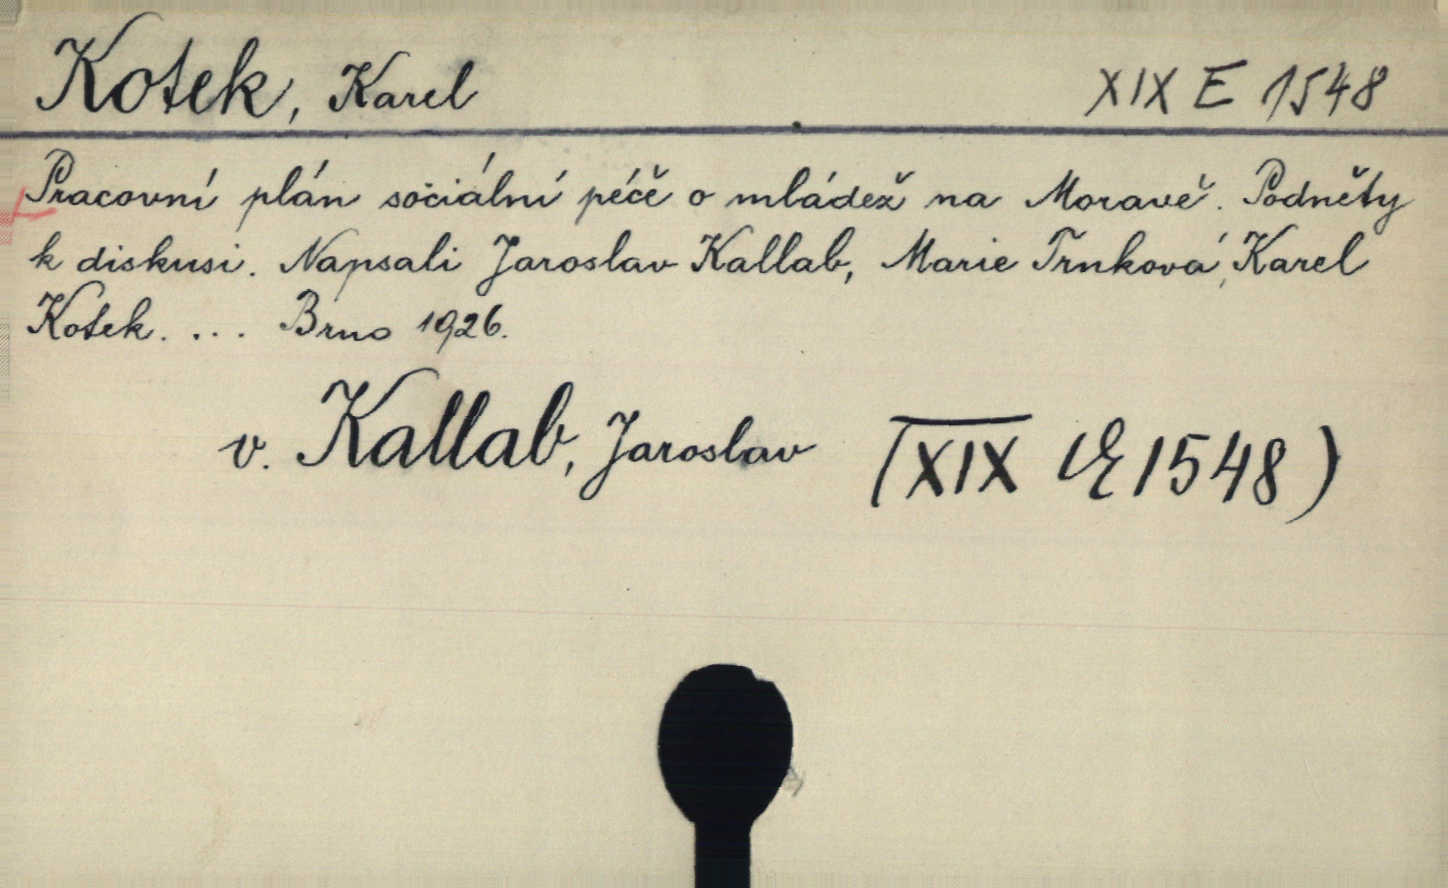 Kotek, Karel XIX E 1548
Pracovní plán sociální péče o mládež na Moravě. Podněty
k diskusi. Napsali Jaroslav Kallab, Marie Trnková, Karel
Kotek. ... Brno 1926.
v. Kallab, Jaroslav (XIX E 1548)